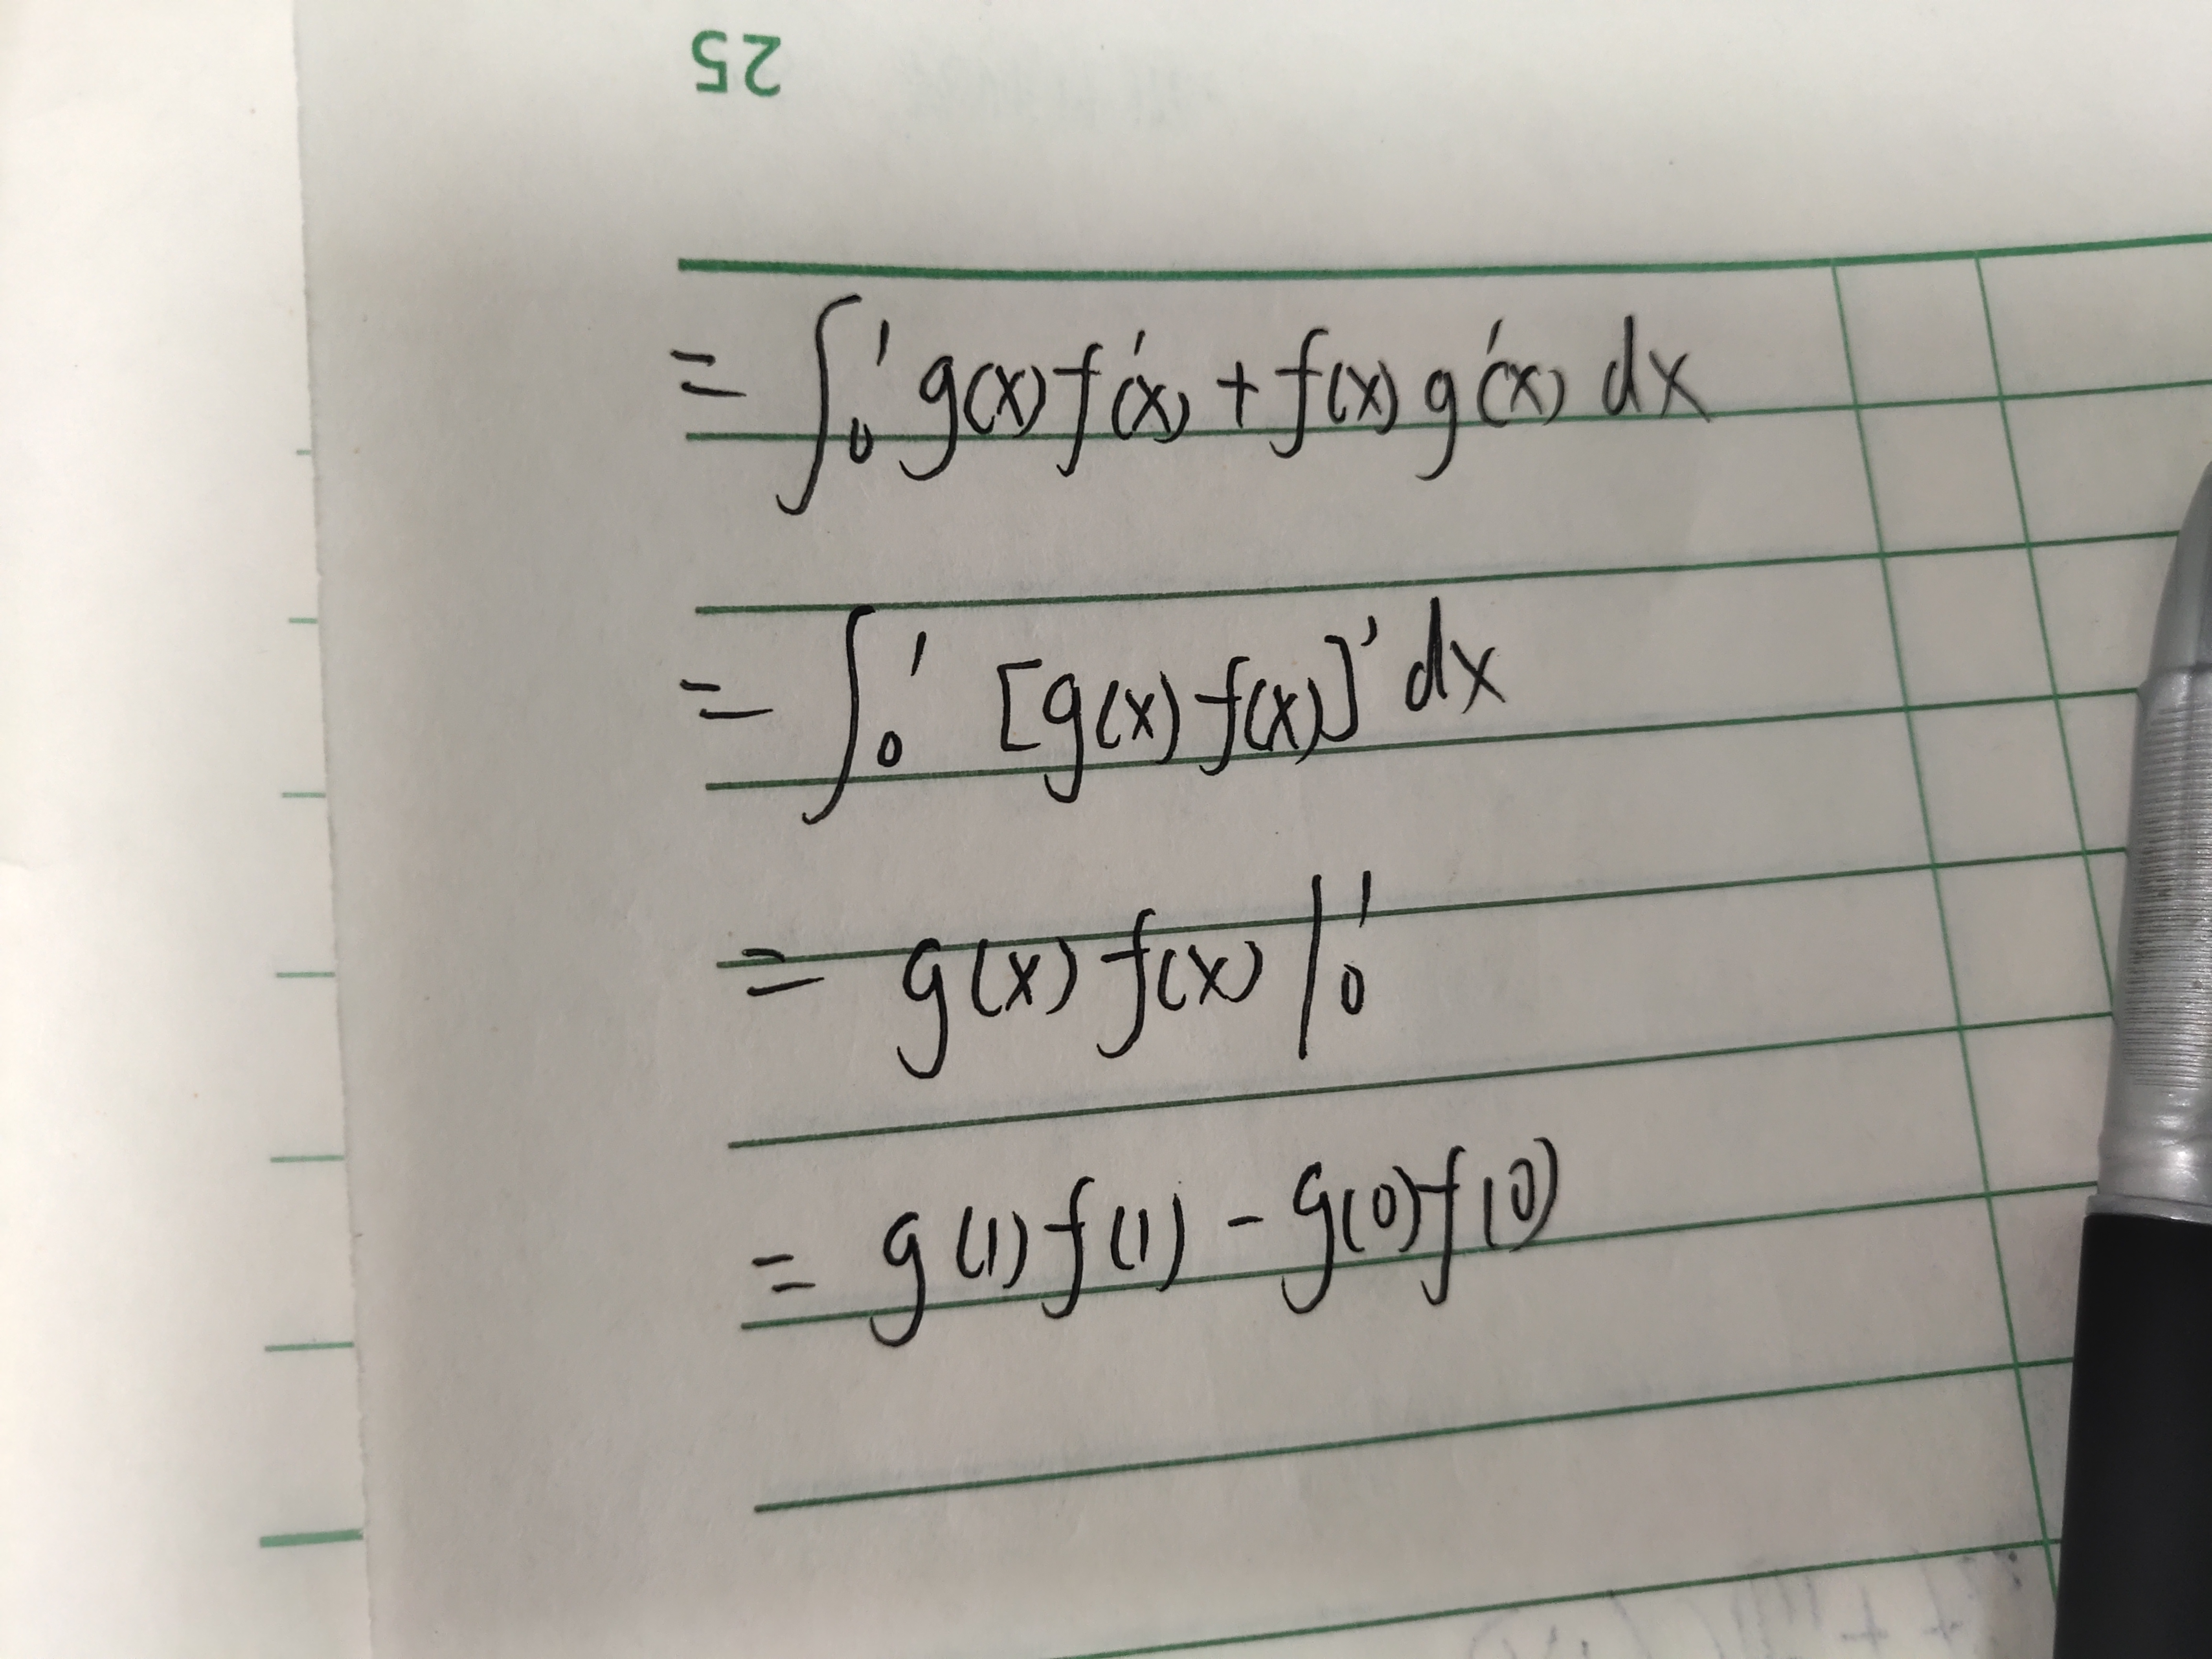 25
= ∫₀¹ g(x) f'(x) + f(x) g'(x) dx
= ∫₀¹ [g(x) f(x)]' dx
= g(x) f(x) |₀¹
= g(1) f(1) - g(0) f(0)